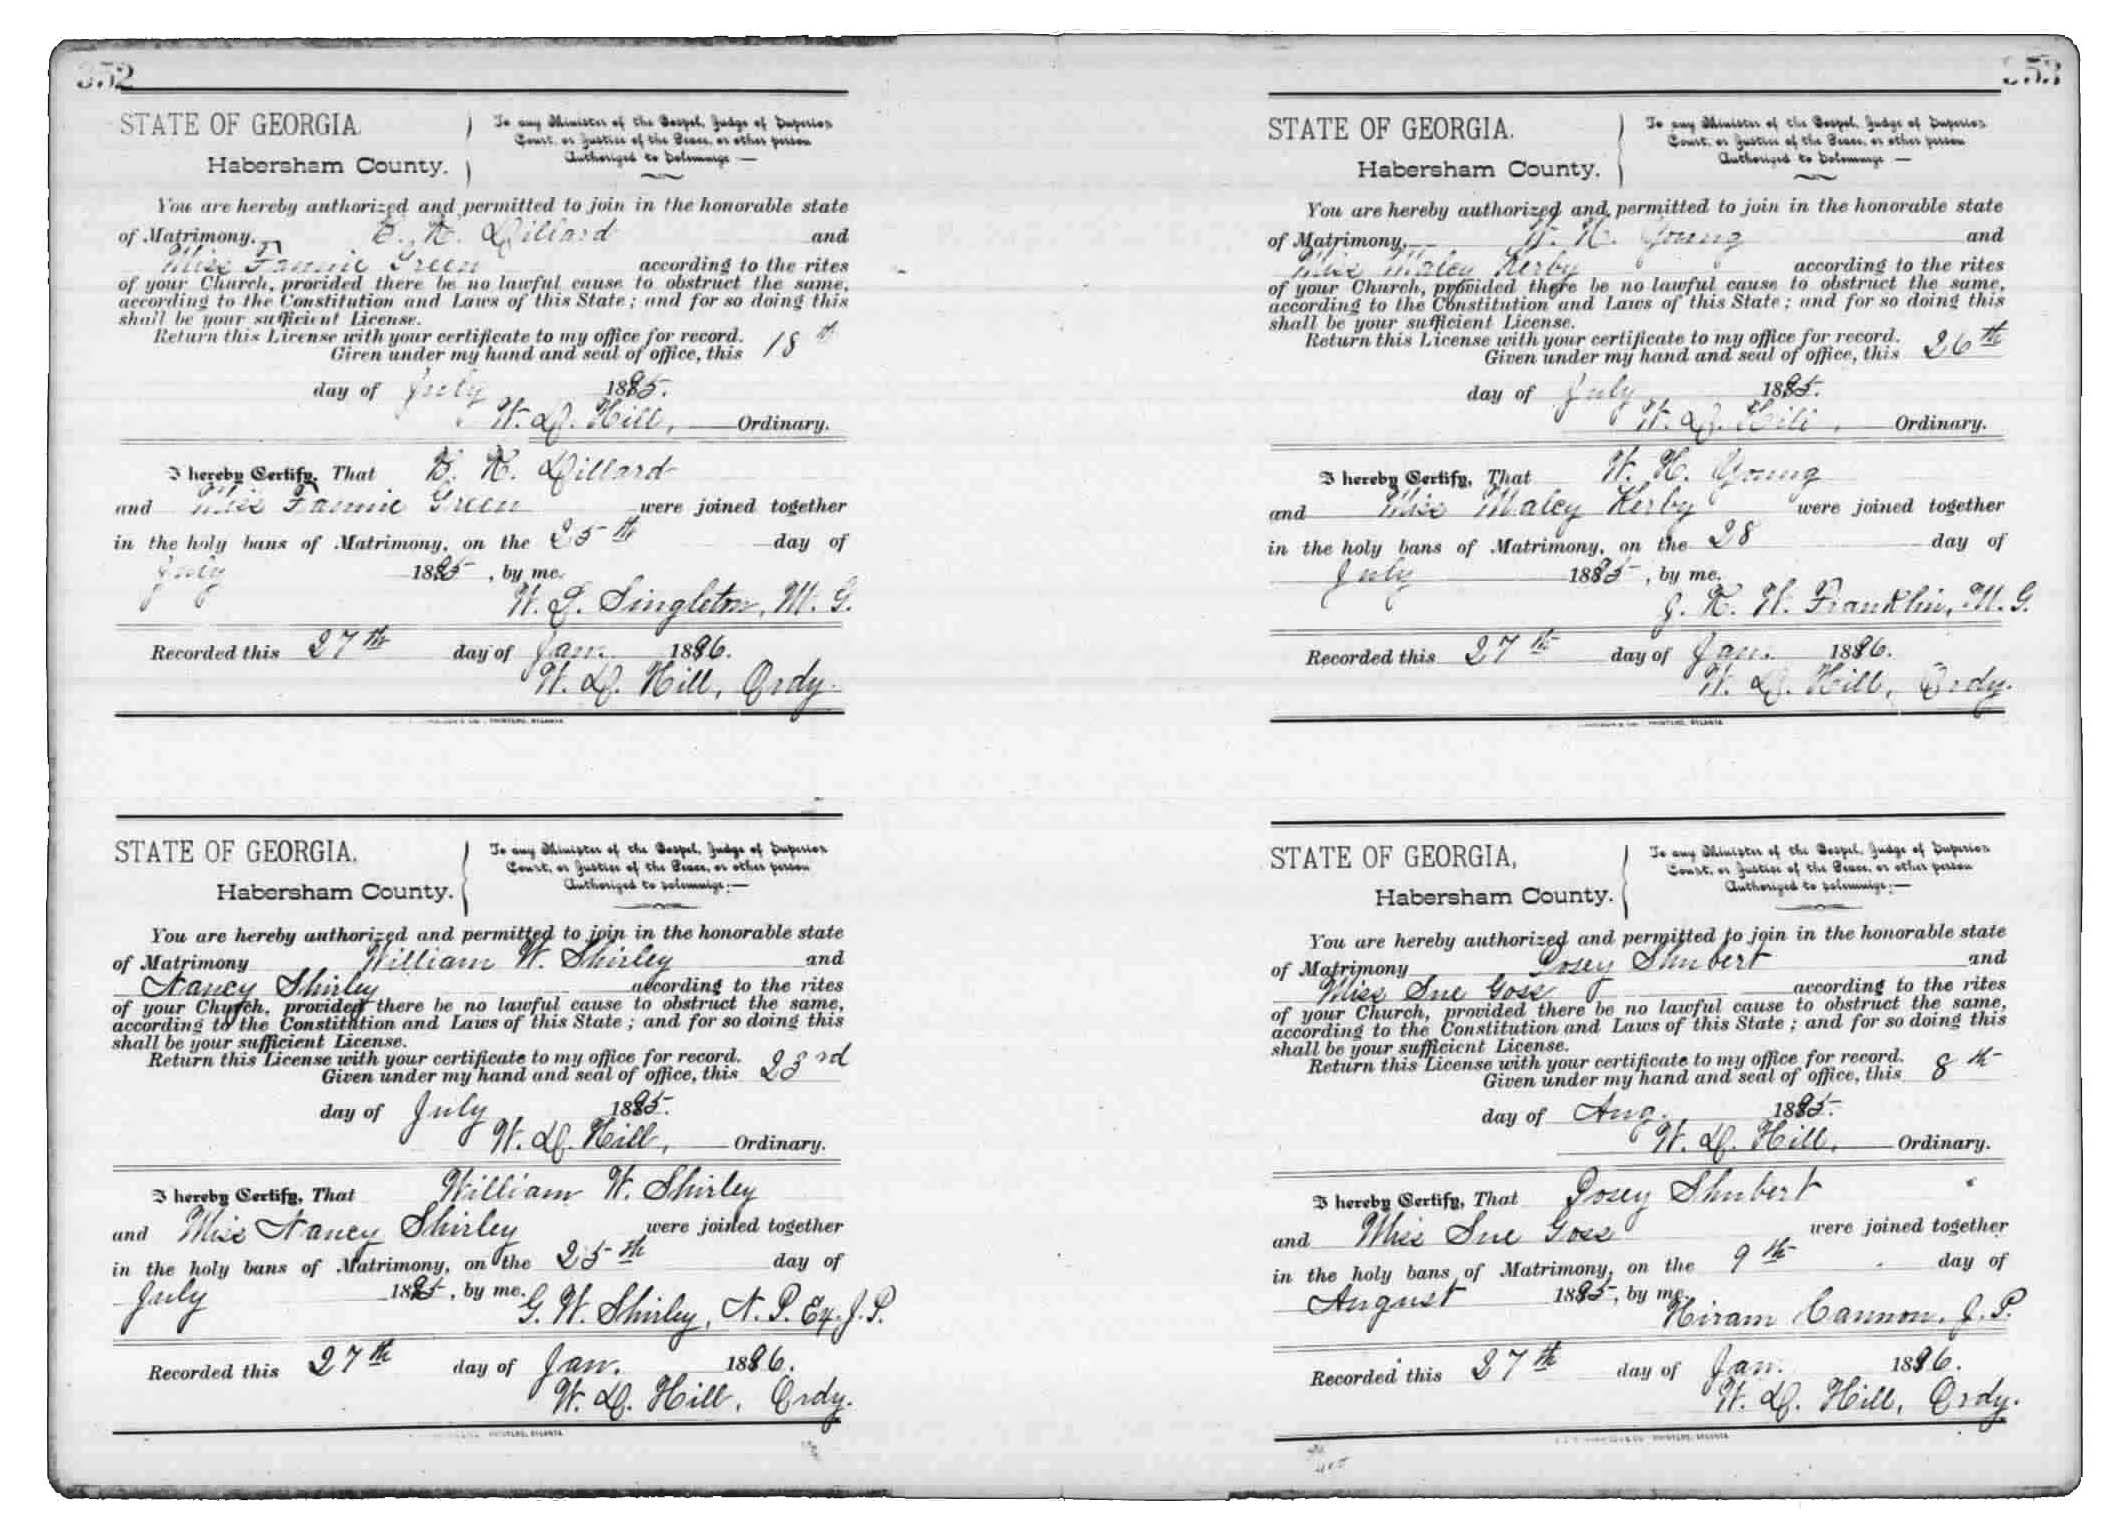 352
STATE OF GEORGIA.
Habersham County.
To any Minister of the Gospel, Judge of Superior
Court, or Justice of the Peace, or other person
Authorized to Solemnize —
You are hereby authorized and permitted to join in the honorable state
of Matrimony, B. H. Dillard and
Miss Fannie Green according to the rites
of your Church, provided there be no lawful cause to obstruct the same,
according to the Constitution and Laws of this State; and for so doing this
shall be your sufficient License.
Return this License with your certificate to my office for record.
Given under my hand and seal of office, this 18th
day of July 1895.
W. D. Hill, Ordinary.
I hereby Certify, That B. H. Dillard
and Miss Fannie Green were joined together
in the holy bans of Matrimony, on the 25th day of
July 1895, by me.
W. L. Singleton, M. G.
Recorded this 27th day of Jan. 1896.
W. D. Hill, Ordy.
PRINTERS, ATLANTA
STATE OF GEORGIA,
Habersham County.
To any Minister of the Gospel, Judge of Superior
Court, or Justice of the Peace, or other person
Authorized to solemnize:—
You are hereby authorized and permitted to join in the honorable state
of Matrimony William W. Shirley and
Nancy Shirley according to the rites
of your Church, provided there be no lawful cause to obstruct the same,
according to the Constitution and Laws of this State; and for so doing this
shall be your sufficient License.
Return this License with your certificate to my office for record.
Given under my hand and seal of office, this 23rd
day of July 1895.
W. D. Hill, Ordinary.
I hereby Certify, That William W. Shirley
and Miss Nancy Shirley were joined together
in the holy bans of Matrimony, on the 25th day of
July 1895, by me.
G. W. Shirley, N. P. Ex. J. P.
Recorded this 27th day of Jan. 1896.
W. D. Hill, Ordy.
PRINTERS, ATLANTA
353
STATE OF GEORGIA.
Habersham County.
To any Minister of the Gospel, Judge of Superior
Court, or Justice of the Peace, or other person
Authorized to Solemnize —
You are hereby authorized and permitted to join in the honorable state
of Matrimony, W. H. Young and
Miss Maley Kerby according to the rites
of your Church, provided there be no lawful cause to obstruct the same,
according to the Constitution and Laws of this State; and for so doing this
shall be your sufficient License.
Return this License with your certificate to my office for record.
Given under my hand and seal of office, this 26th
day of July 1895.
W. D. Hill, Ordinary.
I hereby Certify, That W. H. Young
and Miss Maley Kerby were joined together
in the holy bans of Matrimony, on the 28 day of
July 1895, by me.
J. H. W. Franklin, M. G.
Recorded this 27th day of Jan. 1896.
W. D. Hill, Ordy.
PRINTERS, ATLANTA
STATE OF GEORGIA,
Habersham County.
To any Minister of the Gospel, Judge of Superior
Court, or Justice of the Peace, or other person
Authorized to solemnize:—
You are hereby authorized and permitted to join in the honorable state
of Matrimony Posey Shubert and
Miss Sue Goss according to the rites
of your Church, provided there be no lawful cause to obstruct the same,
according to the Constitution and Laws of this State; and for so doing this
shall be your sufficient License.
Return this License with your certificate to my office for record.
Given under my hand and seal of office, this 8th
day of Aug. 1895.
W. D. Hill, Ordinary.
I hereby Certify, That Posey Shubert
and Miss Sue Goss were joined together
in the holy bans of Matrimony, on the 9th day of
August 1895, by me.
Hiram Cannon, J. P.
Recorded this 27th day of Jan. 1896.
W. D. Hill, Ordy.
PRINTERS, ATLANTA